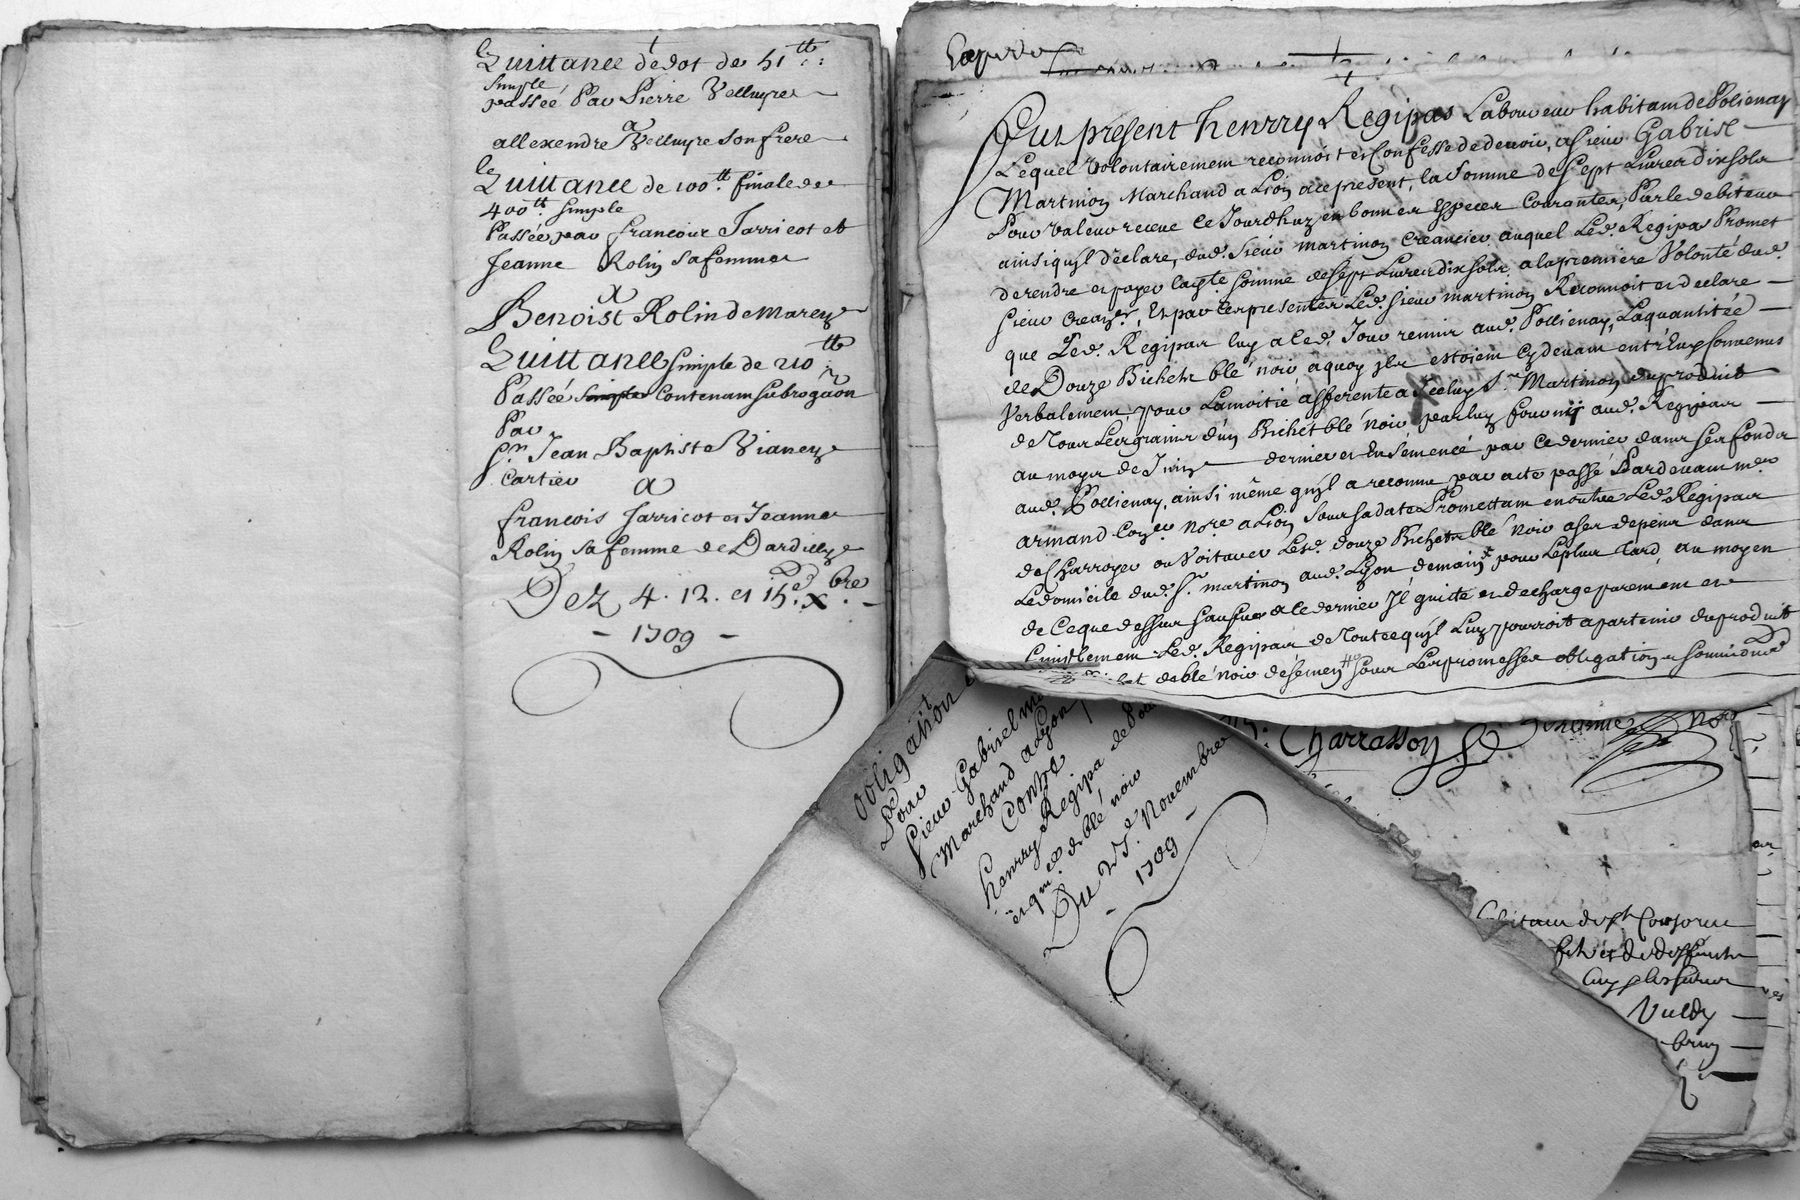 Quittance de dot de 51tt
simple
passée Par Pierre Velluyre
a
allexendre Velluyre son frere
Quittance de 100tt. finale de
400tt. simple
Passée par francois Jarricot et
Jeanne Rolin sa femme
a
Benoist Rolin de Marcy
Quittance simple de 210tt
Passée simple Contenant subrogaon
Par
Sr. Jean Baptiste Vianey
Cartier
a
francois Jarricot et Jeanne
Rolin sa femme de Dardilly
Dez 4. 12. et 15e. Xbre.
- 1709 -
Expedié
Fut present henrry Regipas Laboureur habitant de Polienay
Lequel volontairement reconnoit et Confesse de devoir, a sieur Gabriel
Martinon Marchand a Lion, acepresent, la somme de sept Livres dix sols
Pour valeur receue ce Jourdhuy en bonnes Especes Courantes, Par le debiteur
ainsi quil declare, dud. sieur martinon Creancier auquel Led. Regipas Promet
de rendre et payer lad. somme de sept Livres dix sols, a la premiere Volonté dud.
sieur Creanr., Et par ces presentes Led. sieur martinon Reconnoit et declare
que Led. Regipas luy a led. Jour remis aud. Pollienay, La quantitée
de Douze Bichets blé noir a quoy ils estoient cy devant entr'Eux Convenus
Verbalement, pour La moitié afferente a Iceluy Sr. Martinon du produit
de Tous Les grains d'un Bichet blé noir par luy fourny aud. Regipas
au moys de Juin dernier et Ensemencé par ce dernier dans ses fonds
aud. Pollienay, ainsi même quil a reconnu par acte passé Pardevant me.
armand Coner. Nore. a Lion sous sa date Promettant en outre Led. Regipas
de Charroyer ou Voiturer Lesd. douze Bichets blé Noir a ses depens dans
Le domicile dud. Sr. martinon aud. Lyon demain pour Le plus tard, au moyen
de Ce que dessus
Led. Regipas de Tout ce quil Luy pourroit apartenir du produit
de blé noir Les promesses obligation
obligation
Pour
Sieur Gabriel
Marchand a Lyon
Contre
henrry Regipa
de blé noir
Du Novembre
- 1709 -
Charrasson
Vuldy
brun